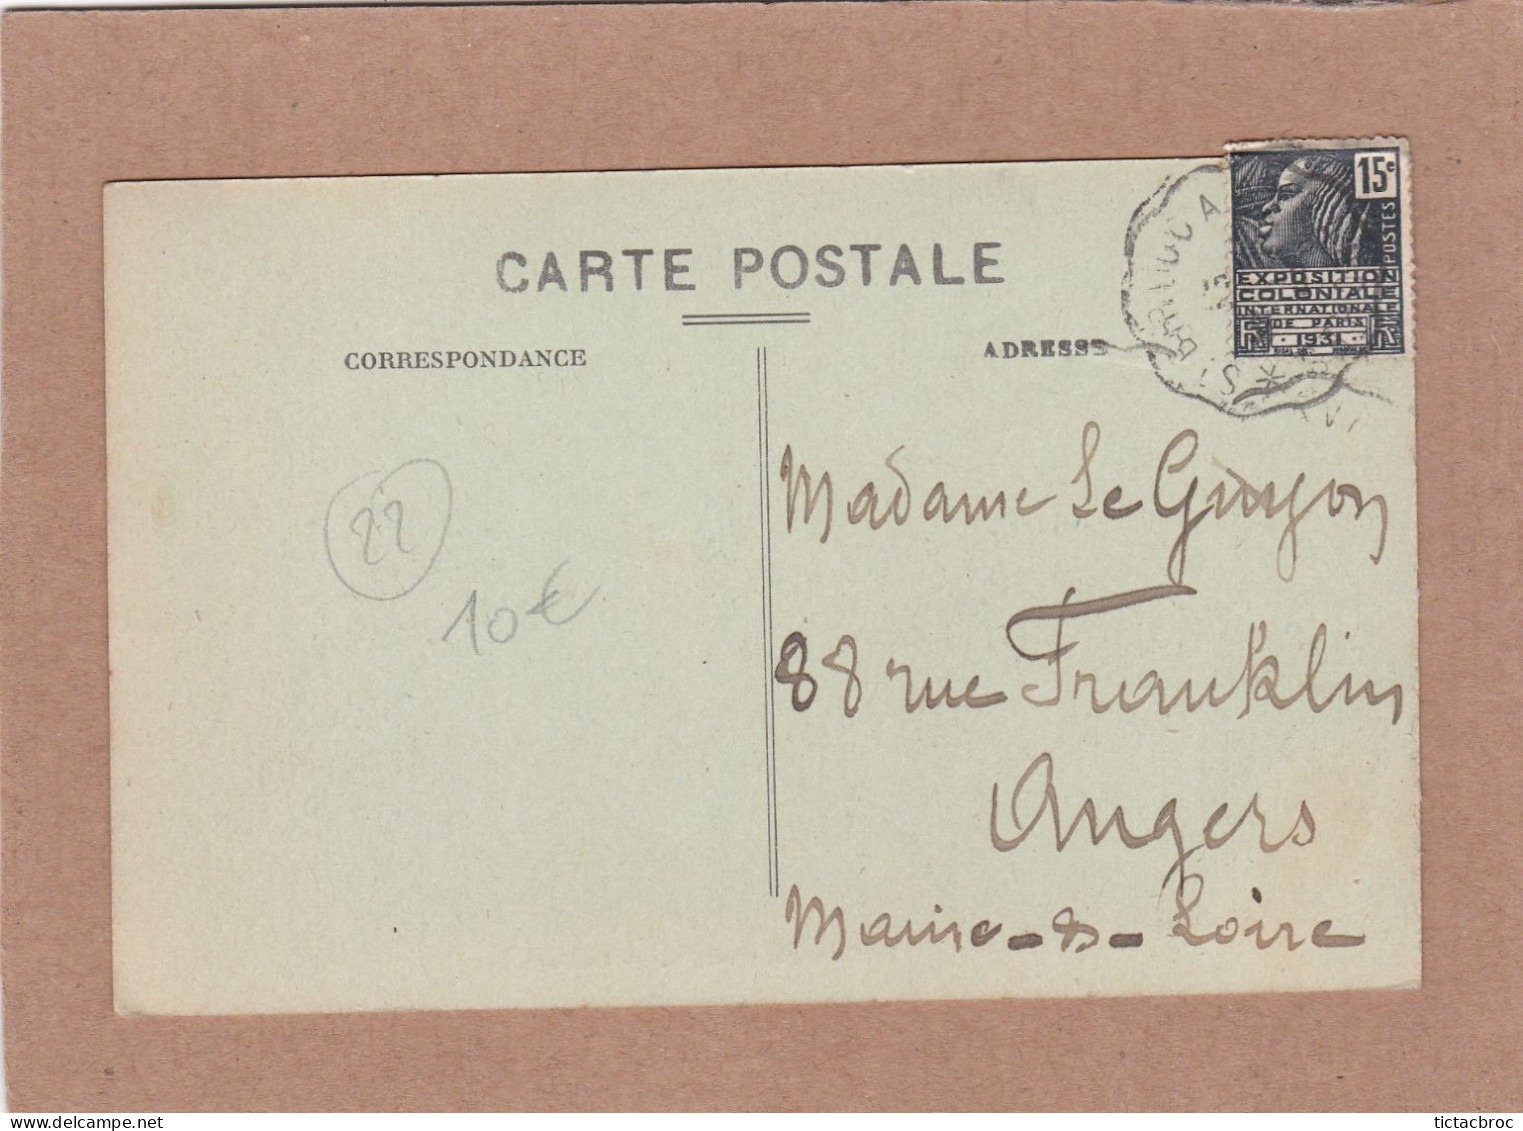 CARTE POSTALE
CORRESPONDANCE
ADRESSE
15c
POSTES
EXPOSITION
COLONIALE
INTERNATIONALE
DE PARIS
1931
ST BRIEUC A
Madame Le Guyon
88 rue Franklin
Angers
Maine-&-Loire
22
10€
tictacbroc